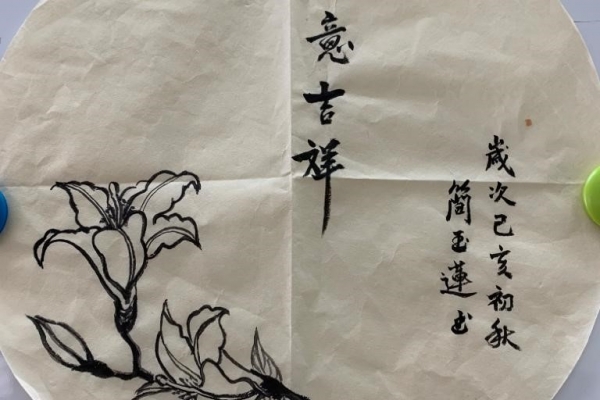 意吉祥
歲次己亥初秋
簡玉蓮书